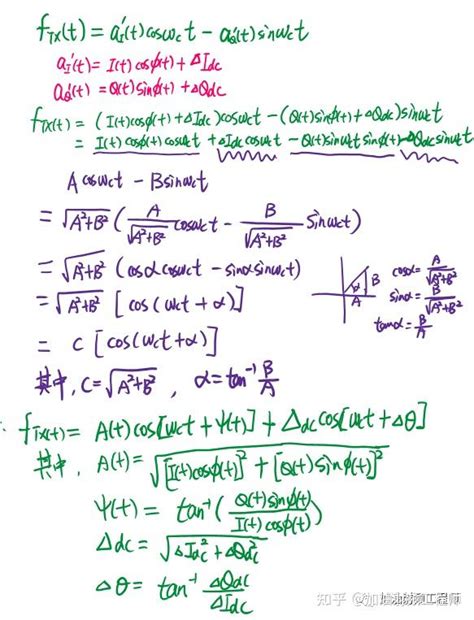 f_TX(t) = a_I'(t)cosω_ct − a_Q'(t)sinω_ct
a_I'(t) = I(t)cosφ(t) + ΔI_dc
a_Q'(t) = Q(t)sinφ(t) + ΔQ_dc
f_TX(t) = (I(t)cosφ(t) + ΔI_dc)cosω_ct − (Q(t)sinφ(t) + ΔQ_dc)sinω_ct
= I(t)cosφ(t)cosω_ct + ΔI_dc cosω_ct − Q(t)sinω_ct sinφ(t) − ΔQ_dc sinω_ct
A cosω_ct − B sinω_ct
= √(A²+B²) (A/√(A²+B²) cosω_ct − B/√(A²+B²) sinω_ct)
= √(A²+B²) (cosα cosω_ct − sinα sinω_ct)
= √(A²+B²) [cos(ω_ct + α)]
= C [cos(ω_ct + α)]
其中, C = √(A²+B²), α = tan⁻¹ B/A
α A B
cosα = A/√(A²+B²)
sinα = B/√(A²+B²)
tanα = B/A
∴ f_TX(t) = A(t)cos[ω_ct + ψ(t)] + Δ_dc cos[ω_ct + Δθ]
其中, A(t) = √([I(t)cosφ(t)]² + [Q(t)sinφ(t)]²)
ψ(t) = tan⁻¹(Q(t)sinφ(t)/I(t)cosφ(t))
Δdc = √(ΔI_dc² + ΔQ_dc²)
Δθ = tan⁻¹ ΔQ_dc/ΔI_dc
知乎 @加油射频工程师